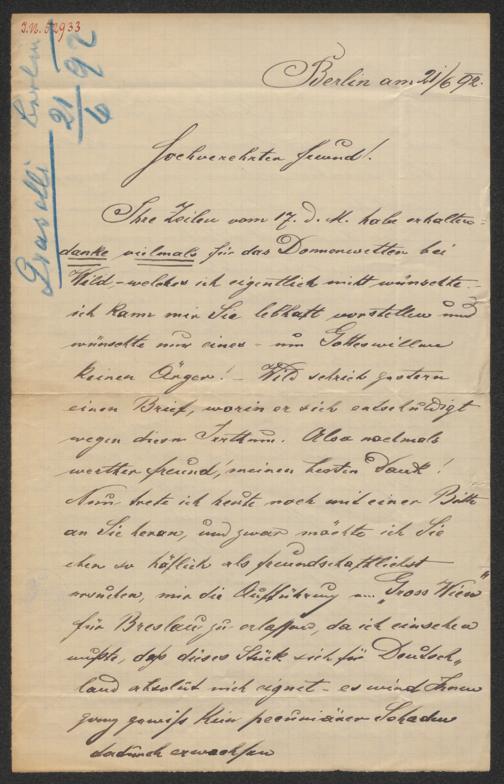 J.N. 52933
Graselli Berlin
21/6 92
Berlin am 21/6 92.
Hochverehrter Freund!
Ihre Zeilen vom 17. d. M. habe erhalten-
danke vielmals für das Donnerwetter bei
Wild - welches ich eigentlich nicht wünschte -
ich kann mir Sie lebhaft vorstellen und
wünschte nur eines - um Gotteswillen
keinen Ärger! - Wild schrieb gestern
einen Brief, worin er sich entschuldigt
wegen diesem Irrthum. Also nochmals
werther Freund, meinen besten Dank!
Nun trete ich heute noch mit einer Bitte
an Sie heran, und zwar möchte ich Sie
eben so höflich als freundschaftlichst
ersuchen, mir die Aufführung von "Gross Wien"
für Breslau zu erlassen, da ich einsehen
mußte, daß dieses Stück sich für Deutsch-
land absolut nich eignet - es wird Ihnen
ganz gewiss kein pecuniärer Schaden
dadurch erwachsen